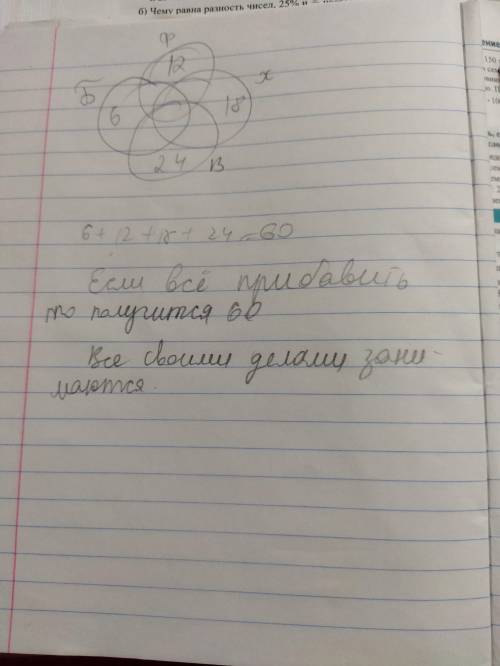 б) Чему равна разность чисел, 25% и
Ф
12
Б
Х
6
18
24
В
6 + 12 + 18 + 24 = 60
Если всё прибавить
то получится 60
Все своими делами зани-
маются.
150